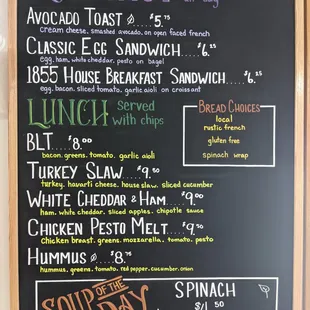 all day
AVOCADO TOAST ø ..$5.75
cream cheese, smashed avocado, on open faced french
CLASSIC EGG SANDWICH....$6.25
egg, ham, white cheddar, pesto on bagel
1855 HOUSE BREAKFAST SANDWICH....$6.25
egg, bacon, sliced tomato, garlic aioli on croissant
LUNCH served with chips
BREAD CHOICES
local
rustic french
gluten free
spinach wrap
BLT .....$8.00
bacon, greens, tomato, garlic aioli
TURKEY SLAW....$9.50
turkey, havarti cheese, house slaw, sliced cucumber
WHITE CHEDDAR & HAM....$9.00
ham, white cheddar, sliced apples, chipotle sauce
CHICKEN PESTO MELT....$9.50
Chicken breast, greens, mozzarella, tomato, pesto
HUMMUS ø.....$8.75
hummus, greens, tomato, red pepper, cucumber, onion
SOUP OF THE DAY
SPINACH